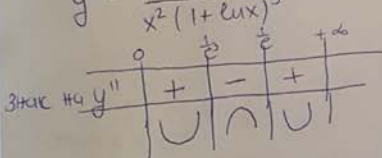 y x²(1+lnx)³
0 1/e³ 1/e +∞
Знак на y'' + − +
∪ ∩ ∪